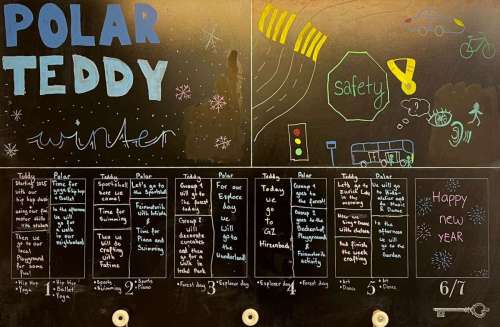 POLAR
TEDDY
winter
safety
?
Teddy
Starting 2025
with our
hip hop dance
using our fine
motor skills
Then we
go to our
local
Playground
for some
fun!
• Hip Hop
• Yoga
1
Polar
Time for
yoga & hip hop
& Ballet
In the afternoon
we will
go for
a walk
to our
neighborhood
• Hip Hop
• Ballet
• Yoga
Teddy
Sportshall
here we
come!
Time for
Swimming
Then we
will do
crafting
with
Fatime
• Sports
• Swimming
2
Polar
Let's go to
the Sportshall
Fairntawintle
with
Time for
Piano and
Swimming
• Sports
• Piano
Teddy
Group 1
will go to
The forest
today
Group 2
will
decorate
cupcakes
and then
go for a
walk to
Irchel Park
• Forest day
3
Polar
For our
Explore
day
we
will
go to
the
Wunderland!
• Explorer day
Teddy
Today
we
go
to
GZ
Hirzenbach
• Explorer day
4
Polar
Group 1
goes to the
forest!
Group 2
goes to the
Bachenhof
Playground
&
activity
• Forest day
Teddy
Let's go to
Zurich Lake
in the
morning
And finish
the week
crafting
• Art
• Dance
5
Polar
We will do
Music & Dance
In the
afternoon
we
will go
to the
Garden
• Art
• Dance
HAPPY
new
YEAR
6/7